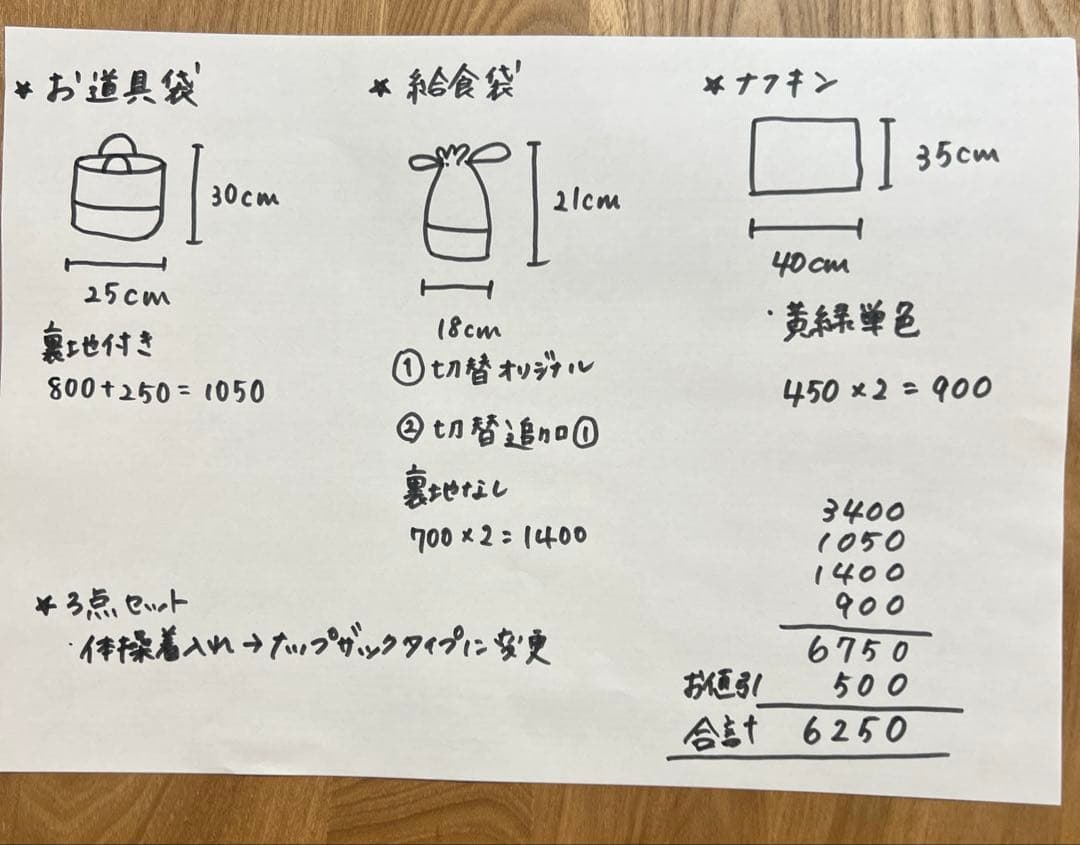 * お道具袋
30cm
25cm
裏地付き
800+250=1050
* 給食袋
21cm
18cm
①切替オリジナル
②切替追加①
裏地なし
700×2=1400
* ナフキン
35cm
40cm
・黄緑単色
450×2=900
* 3点セット
・体操着入れ→ナップザックタイプに変更
3400
1050
1400
900
6750
お値引 500
合計 6250